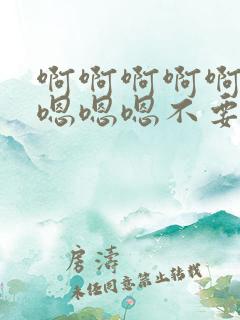 啊啊啊啊啊
嗯嗯嗯不要
房涛
未经同意禁止转载